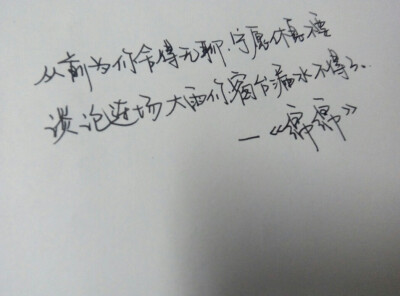 从前为你舍得无聊.宁愿休息
谈论连场大雨你窗台漏水不得了..
—《绵绵》